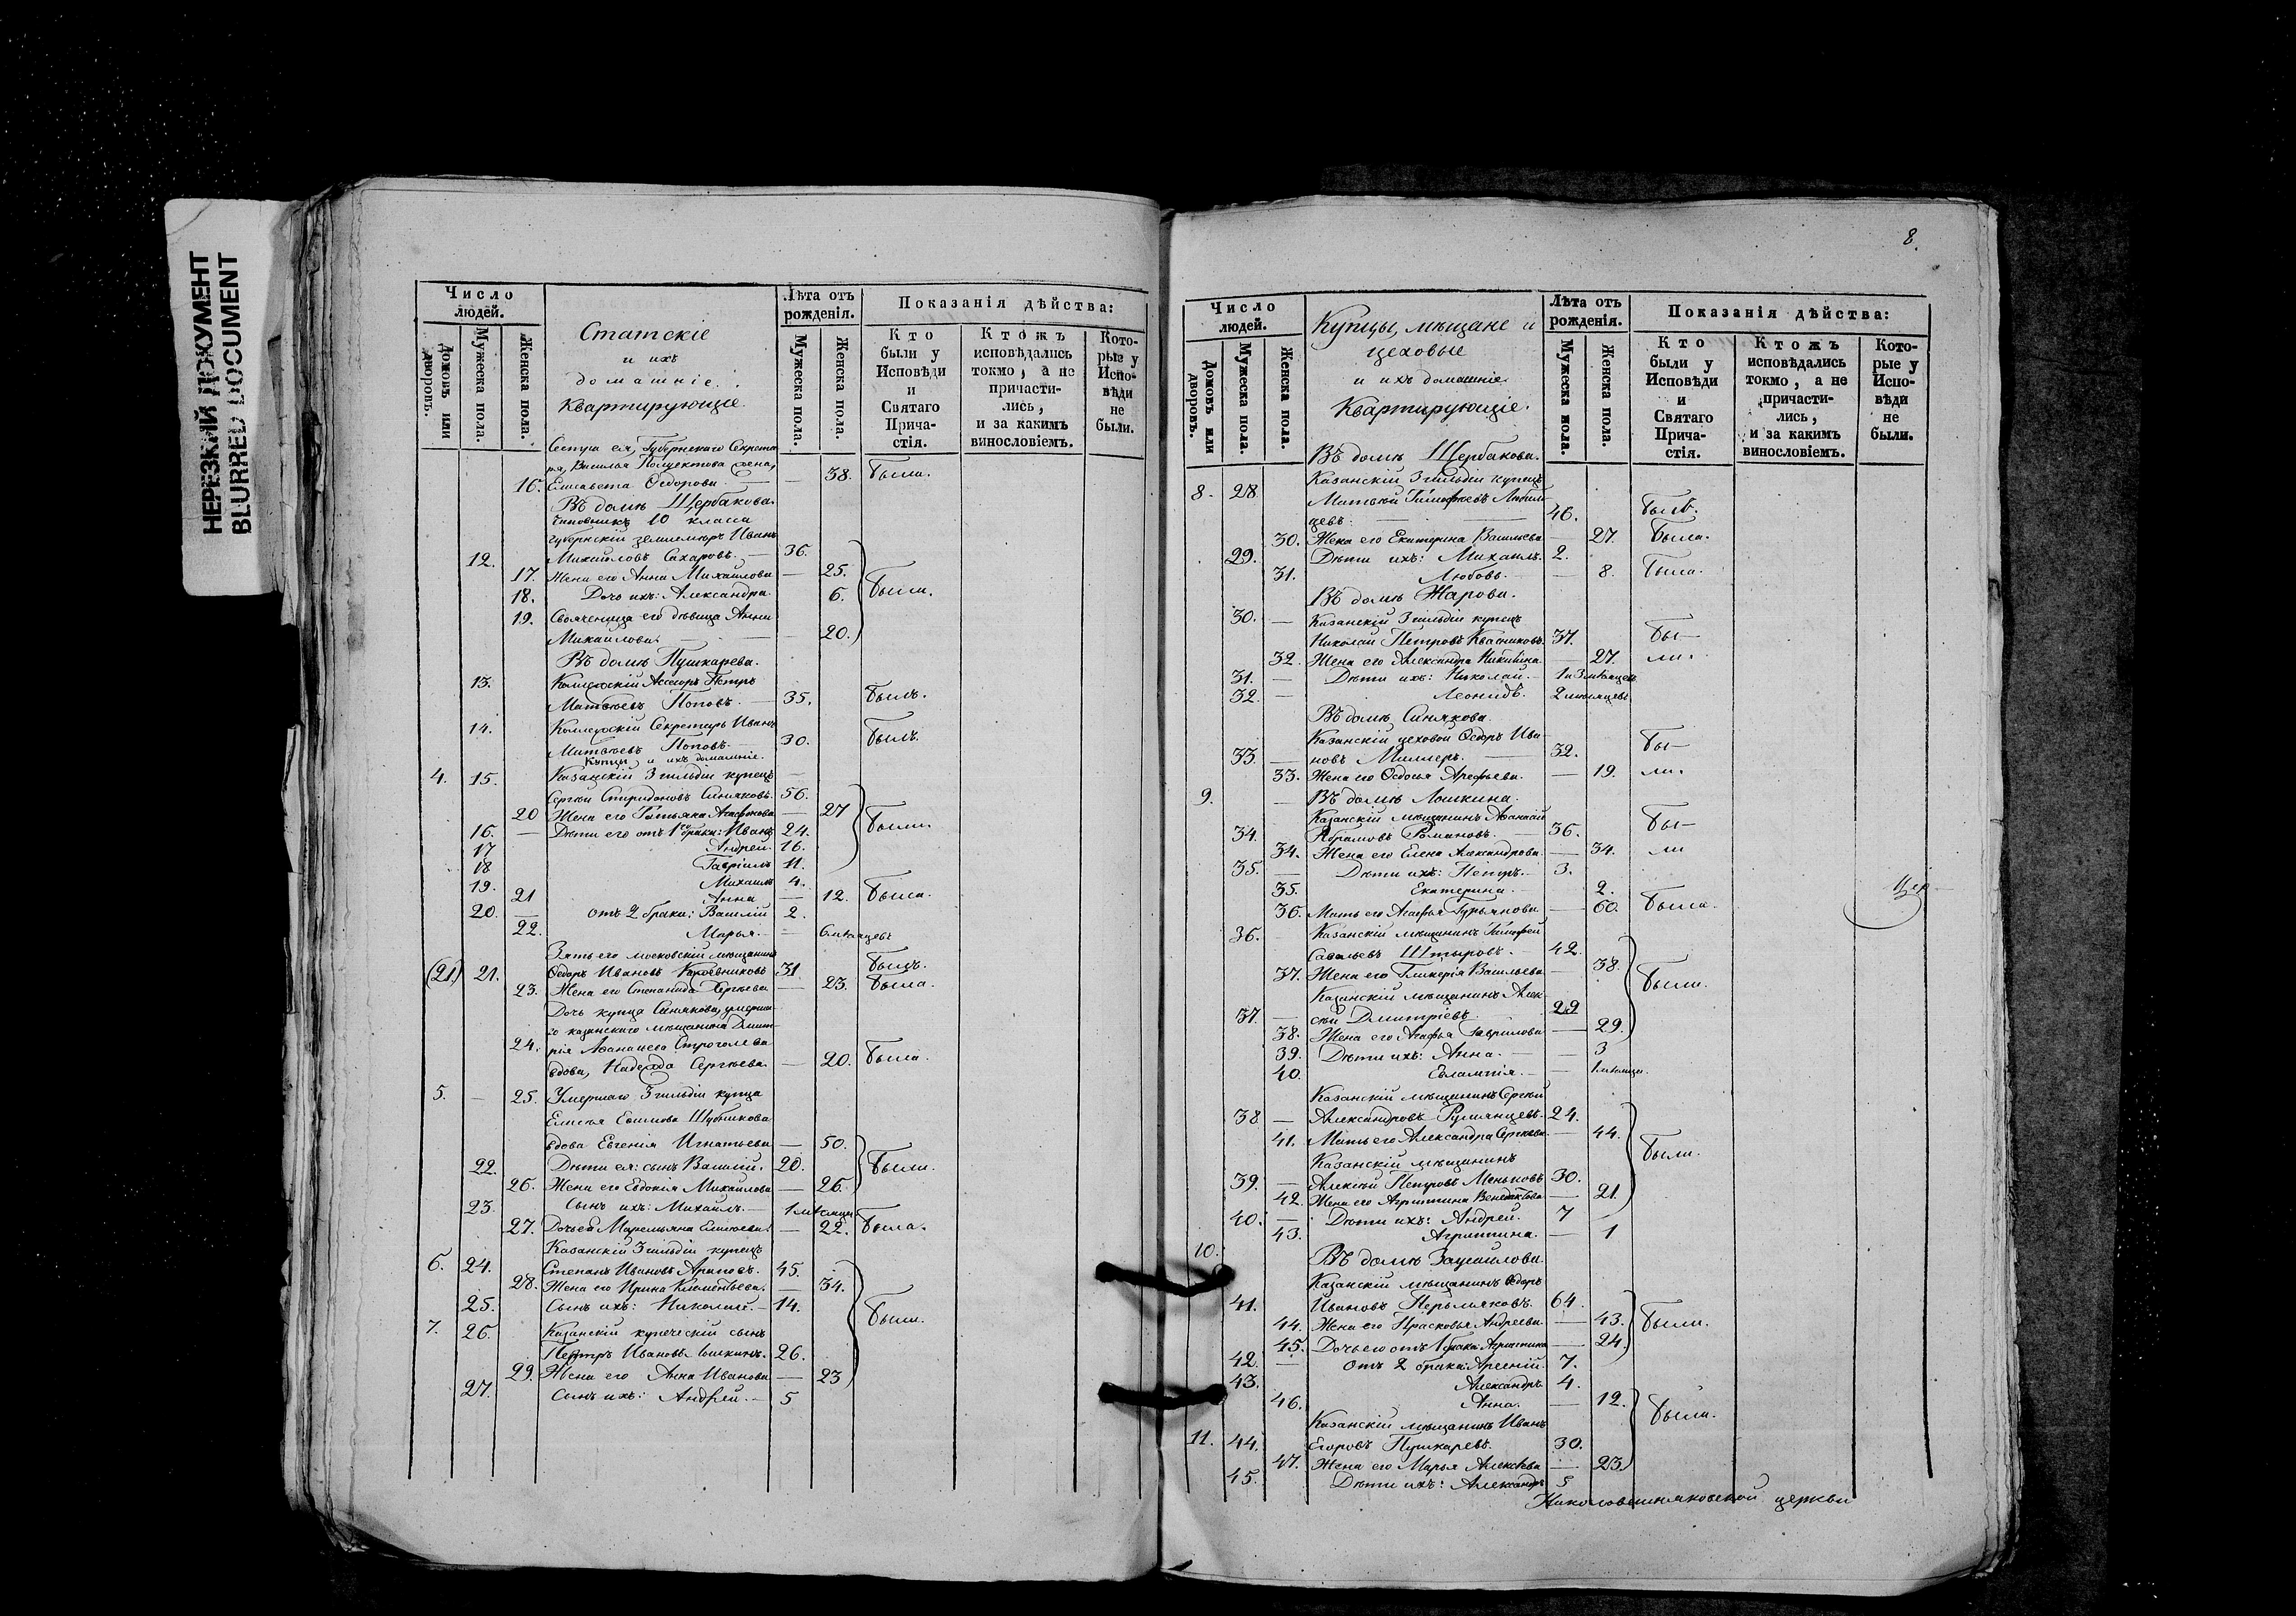 НЕРЕЗКИЙ ДОКУМЕНТ
BLURRED DOCUMENT
Число людей.
Домовъ или дворовъ.
Мужеска пола.
Женска пола.
Статскіе
и ихъ
домашніе.
Квартирующіе.
Лѣта отъ рожденія.
Мужеска пола.
Женска пола.
Показанія дѣйства:
Кто были у Исповѣди и Святаго Прича-стія.
Ктожъ исповѣдались токмо, а не причасти-лись, и за какимъ винословіемъ.
Кото-рые у Испо-вѣди не были.
Сестра ея, Губернскаго Секрета-
ря, Василья жена,
16. Елисавета Ѳедорова — — 38. Была.
Въ домѣ Щербакова.
Чиновникъ 10 класса
Губернскій землемѣръ Иванъ
12. Михайловъ Сахаровъ. — 36.
17. Жена его Анна Михайлова — 25.
18. Дочь ихъ: Александра. 6. Были.
19. Свояченица его дѣвица Анна
Михайлова. — — — 20.
Въ домѣ Пушкарева.
13. Коллежскій Ассесоръ Петръ
Матвѣевъ Поповъ. — 35. Былъ.
14. Коллежскій Секретарь Иванъ
Матвѣевъ Поповъ. 30. Былъ.
Купцы, и ихъ домашніе.
4. 15. Казанскій 3 гильдіи купецъ —
Сергѣй Спиридоновъ Синяковъ. 56.
20 Жена его Татьяна Агафонова — 27 Были.
16. — Дѣти его отъ 1го брака: Иванъ 24.
17 Андрей. 16.
18 Гавріилъ 11.
19. Михаилъ 4.
21 Анна — 12. Была.
20. — отъ 2 брака: Василій 2.
22. Марья. — — 6 мѣсяцевъ
Зять его московскій мѣщанинъ
(21.) 21. Ѳедоръ Ивановъ 31 Былъ.
23. Жена его Степанида Сергѣева — 23. Была.
Дочь купца Синякова, умерша-
го казанскаго мѣщанина Дмит-
24. рія Аѳанасьева Строголева
вдова, Надежда Сергѣева. — 20. Была.
5. — 25. Умершаго 3 гильдіи купца
Елисѣя Ефимова Шубникова
вдова Евгенія Игнатьева — 50.
22. Дѣти ея: сынъ Василій. 20. Были.
26. Жена его Евдокія Михайлова — 26.
23. Сынъ ихъ: Михаилъ. — 1 мѣсяца
27. Дочь ея Маремьяна Елисѣева — 22. Была.
Казанскій 3 гильдіи купецъ
6. 24. Степанъ Ивановъ Араповъ. 45.
28. Жена его Ирина Климентьева. — 34.
25. Сынъ ихъ: Николай. — 14. Были.
7. 26. Казанскій купеческій сынъ
Петръ Ивановъ 26.
29. Жена его Анна Иванова — 23
27. Сынъ ихъ: Андрей. — 5
8.
Число людей.
Домовъ или дворовъ.
Мужеска пола.
Женска пола.
Купцы, мѣщане и
цеховые
и ихъ домашніе.
Квартирующіе.
Лѣта отъ рожденія.
Мужеска пола.
Женска пола.
Показанія дѣйства:
Кто были у Исповѣди и Святаго Прича-стія.
Ктожъ исповѣдались токмо, а не причасти-лись, и за какимъ винословіемъ.
Кото-рые у Испо-вѣди не были.
Въ домѣ Щербакова.
8. 28 Казанскій 3 гильдіи купецъ
Матвѣй Тимофеевъ
цевъ. — — 46. Былъ.
30. Жена его Екатерина Васильева — 27. Была.
29. Дѣти ихъ: Михаилъ. 2.
31. Любовь. — — 8. Была.
Въ домѣ Жарова.
30. — Казанскій 3 гильдіи купецъ
Николай Петровъ Квасниковъ. 37. Бы-
32. Жена его Александра Никитина — 27. ли.
31. — Дѣти ихъ: Николай. — 1 и 3 мѣсяцевъ
32. — Леонидъ. 2 мѣсяцевъ
Въ домѣ Синякова.
Казанскій цеховой Ѳедоръ Ива-
33. — новъ Миллеръ. — 32. Бы-
33. Жена его Ѳедосья Арефьева. — 19. ли.
9. — Въ домѣ Лошкина.
Казанскій мѣщанинъ Аѳанасій
34. Абрамовъ Романовъ. — 36. Бы-
34. Жена его Елена Александрова. — 34. ли
35. — Дѣти ихъ: Петръ. — 3.
35. Екатерина. — 2.
36. Мать его Агафья Гурьянова — 60. Была.
36. — Казанскій мѣщанинъ Тимофей
Савельевъ Штыровъ. 42.
37. Жена его Гликерія Васильева — 38. Были.
Казанскій мѣщанинъ Алек-
37. — сѣй Дмитріевъ. 29
38. Жена его Агафья Гаврилова — 29.
39. Дѣти ихъ: Анна. — — 3
40. Евлампія. — — 1 мѣсяца.
Казанскій мѣщанинъ Сергѣй
38 — Александровъ Румянцевъ. 24.
41. Мать его Александра Сергѣева. — 44.
Казанскій мѣщанинъ Были.
39. — Алексѣй Петровъ Меньковъ 30.
42. Жена его Агрипина Венедиктова — 21.
40. — Дѣти ихъ: Андрей. 7
43. Агрипина. — 1
10. Въ домѣ Заусайлова.
Казанскій мѣщанинъ Ѳедоръ
41. Ивановъ Пермяковъ. 64.
44. Жена его Прасковья Андреева — 43. Были.
45. Дочь его отъ 1 брака Агрипина — 24.
42. — отъ 2 брака: Арсеній. 7.
43. Александръ. 4.
46. Анна. — 12.
Казанскій мѣщанинъ Иванъ Были.
11. 44. Егоровъ Пушкаревъ. 30.
47. Жена его Марья Алексѣева — 23.
45. Дѣти ихъ: Александръ 5
церкви